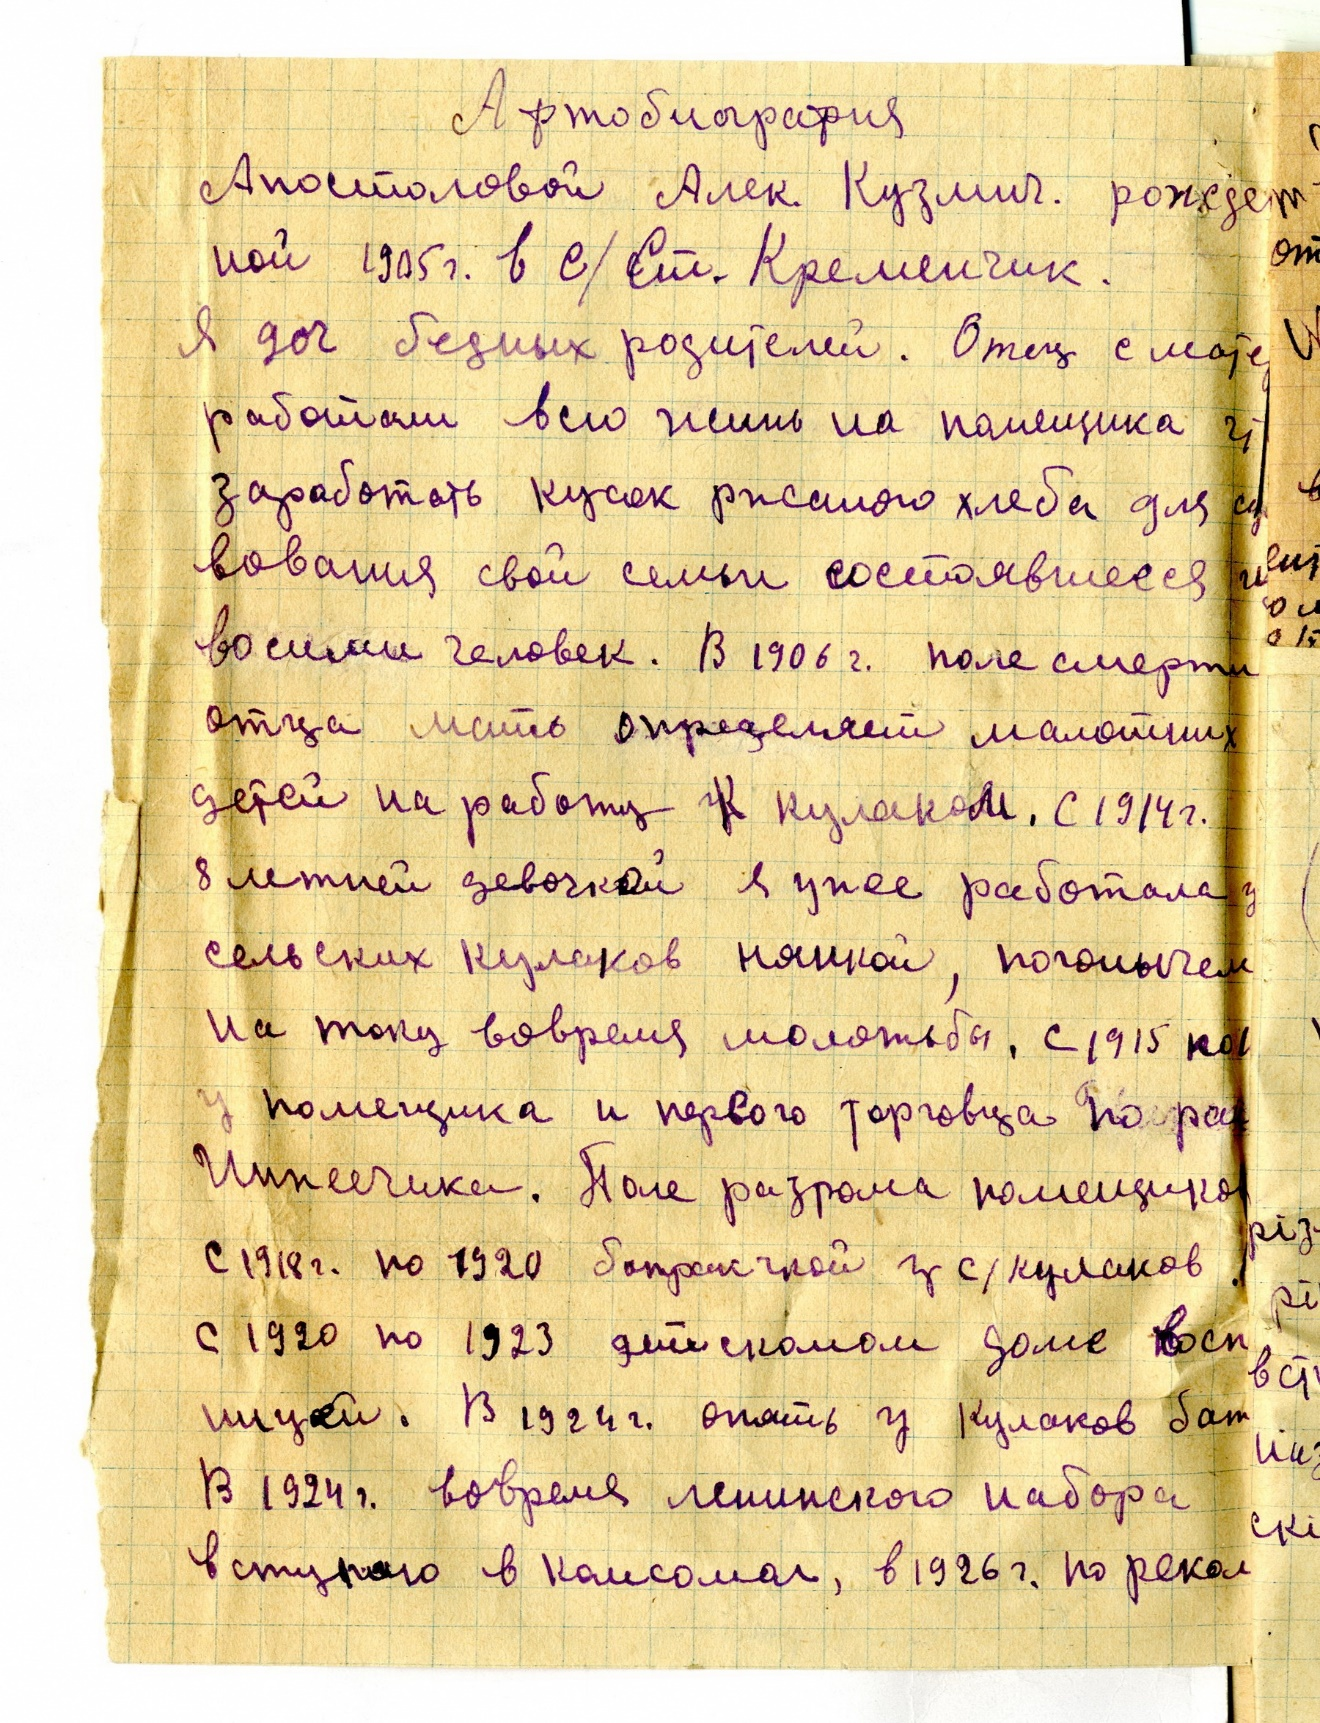 Артобиография
Апостоловой Алек. Кузмич. рожден
ной 1905г. в с/ Ст. Кременчик.
Я доч бедных родителей. Отец с мате
работали всю жизнь на помещика чт
заработать кусок ржаного хлеба для су
вования свой семьи состоявшееся и
восими человек. В 1906 г. поле смерти
отца мать определяет малотних
детей на работу К кулаком. С 1914г.
8 летней девочкой я уже работала у
сельских кулаков нянкой, погонычем
на току вовремя молотьбы. С 1915
у помещика и первого торговца по
Поле разрома помещиков
С 1918г. по 1920 батрачкой у с/кулаков.
С 1920 по 1923 детском доме восп
ницей. В 1924г. опять у кулаков бат
В 1924г. вовремя ленинского набора
вступаю в комсомол, в 1926г. по реком
от
різ
рі
вст
скі